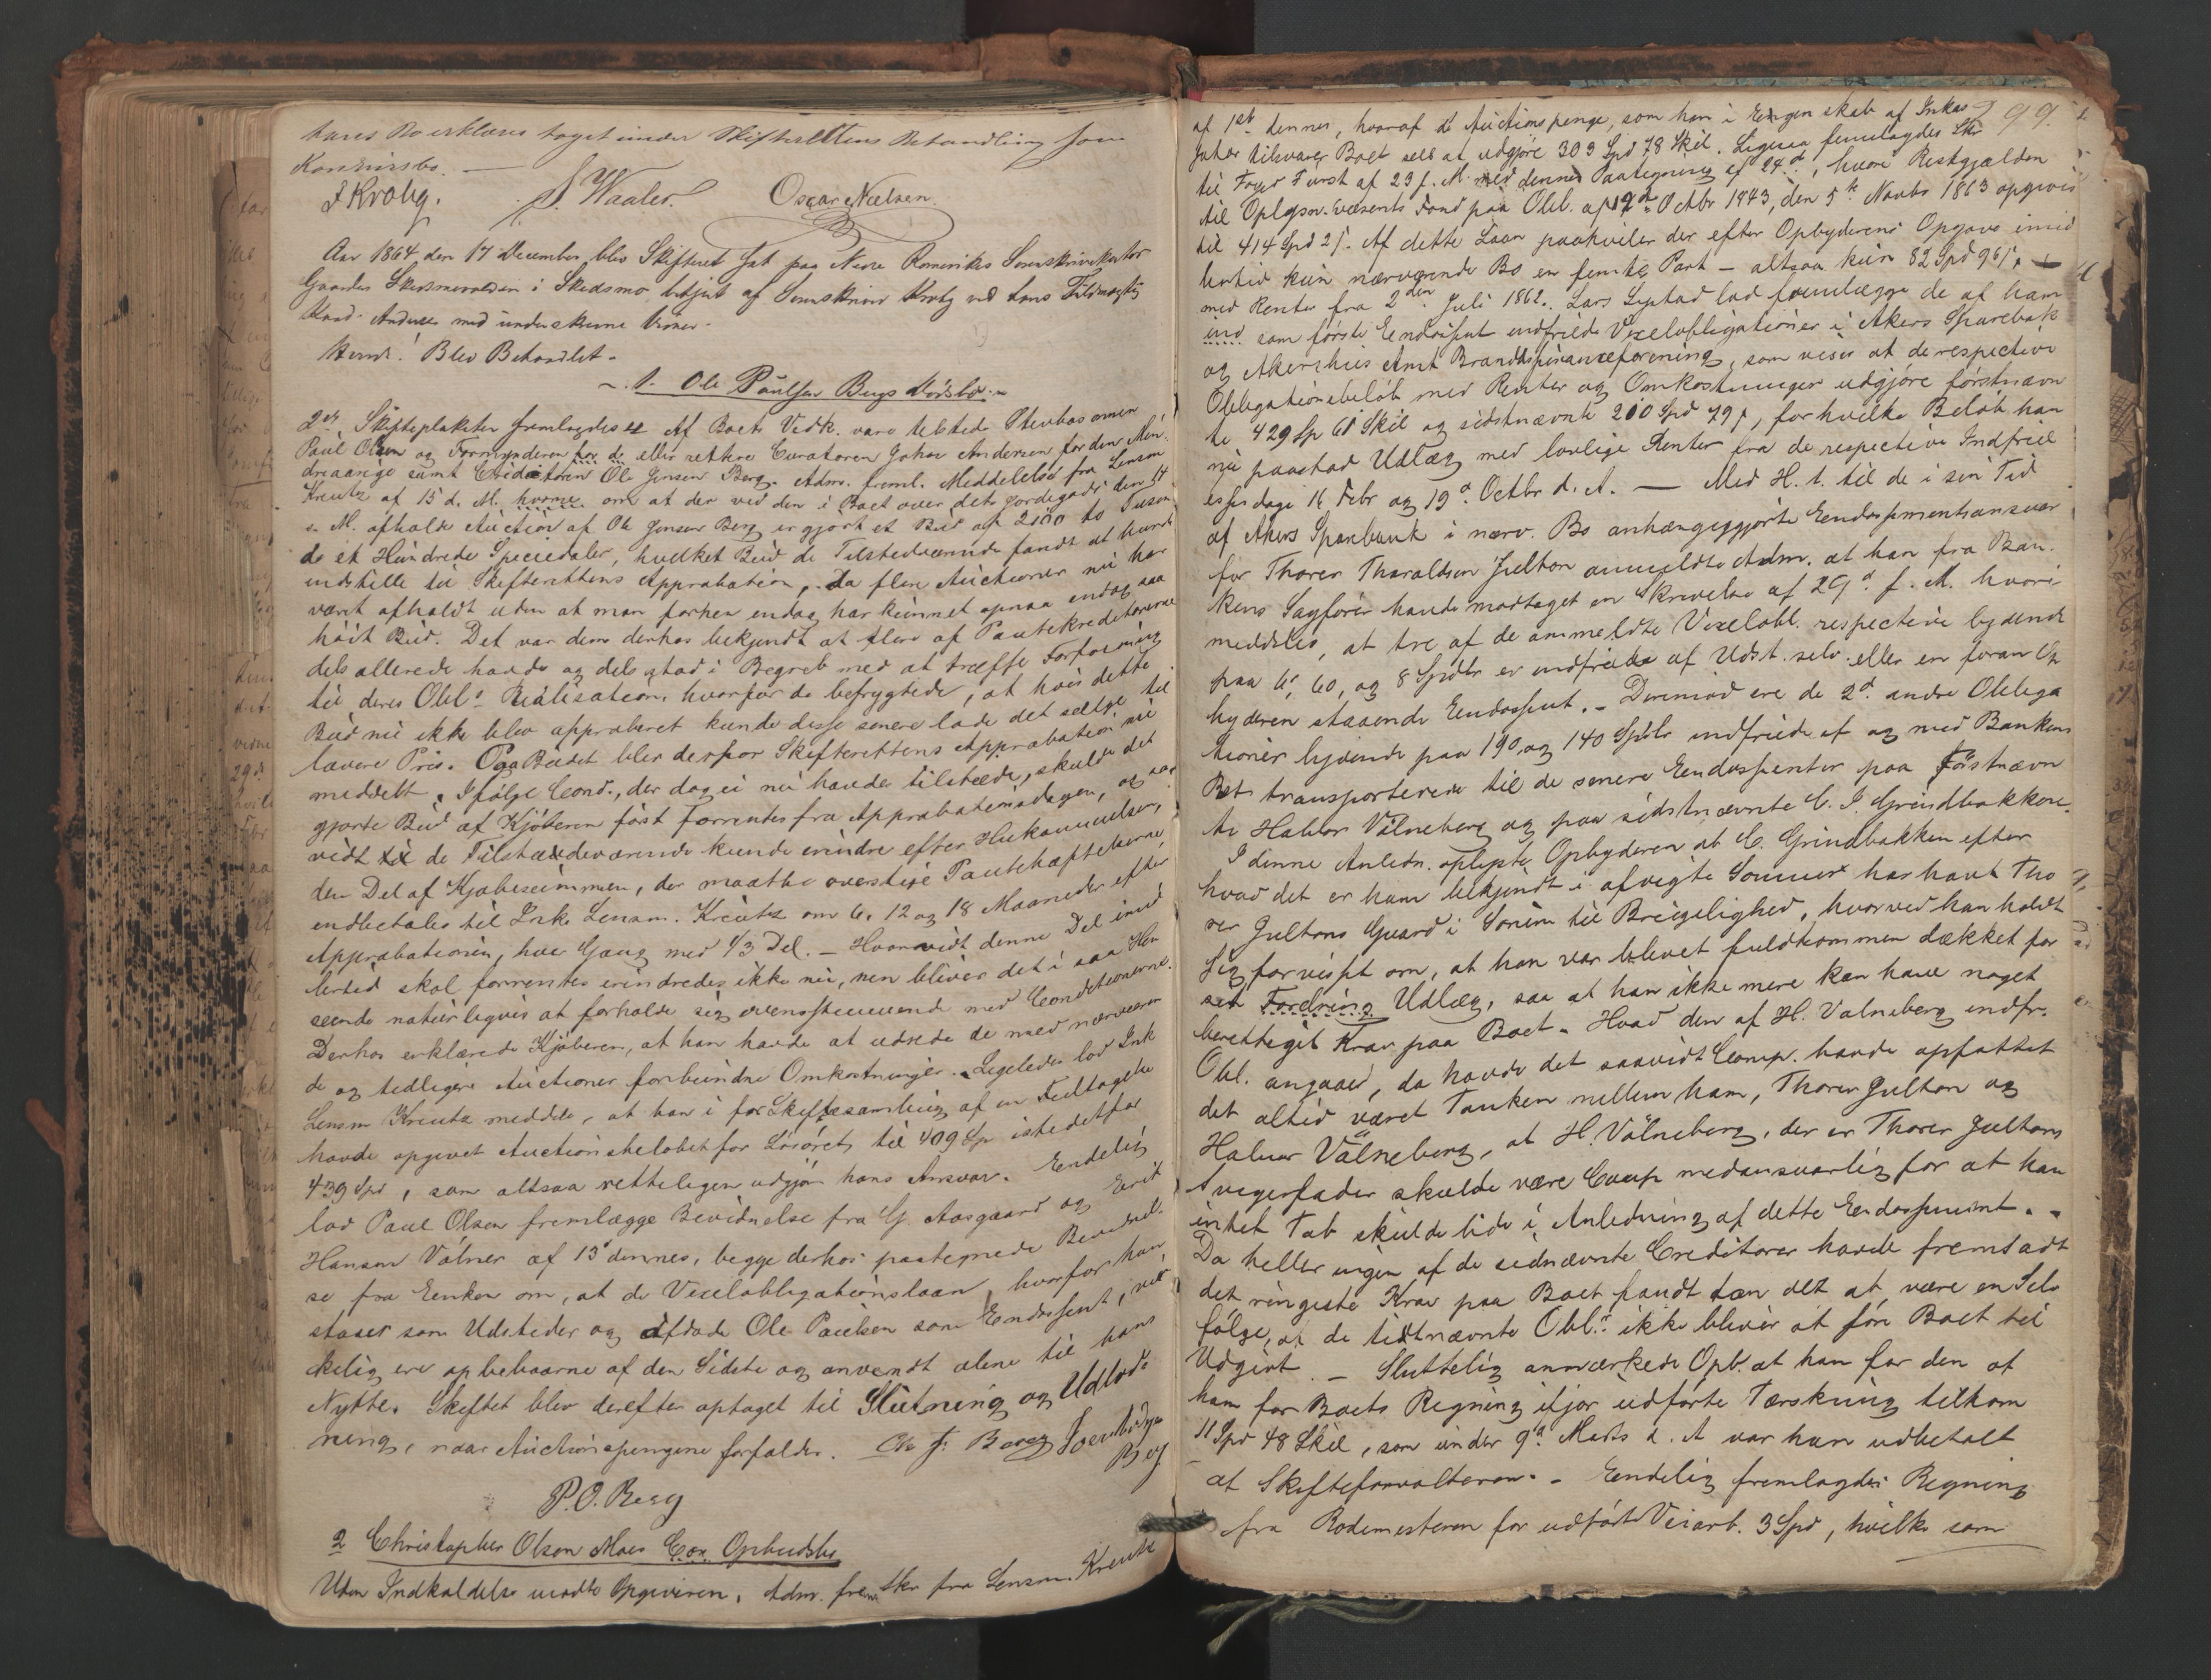 hans Bo erklæres taget under Skifterettens Behandling som
Konkursbo. —
J Krohg. S. Waaler. Oscar Nielsen.
Aar 1864 den 17 December blev Skifteret sat paa Nere Romerikes Sorenskriverkontor
Gaarden Skedsmovolden i Skedsmo betjent af Sorenskriver Krohg ved hans Fuldmægtig
Kand. Andersen med underskrevne Vidner.
Hvorda! Blev Behandlet.
1. Ole Paulsen Bergs Dødsbo.
2de Skifteplakater fremlagdes. Af Boets Vedk. vare tilstede Stervbosonnen
Paul Olsen og Formynderen for de eller rettere Curatoren Johan Andersen for den Min
dreaarige samt Creditoren Ole Jensen Berg. Adm. freml. Meddelelse fra Lensm
Kreutz af 15 d. M. hvorne om at der ved den i Boet over dets Jordegods den 14
s. M. afholdte Auction af Ole Jensen Berg er gjort et Bud af 2100 to Tusen
de et Hundrede Speciedaler, hvilket Bud de Tilstedeværende fandt at burde
indstille til Skifterettens Approbation, da flere Auctioner nu har
været afholdt uden at man forhen endog har kunnet opnaa endog saa
høit Bud. Det var dem derhos bekjendt at flere af Pantekreditorerne
dels allerede havde og dels stod i Begreb med at træffe Forføining
til deres Obl.s Realisation, hvorfor de befrygtede, at hvis dette
Bud nu ikke blev approberet kunde disse senere lade det sælge til
lavere Pris. Paa Budet blev derfor Skifterettens Approbation nu
meddelt. Ifølge Cond., der dog ei nu havdes tilstede, skulde det
gjorte Bud af Kjøberen først forrentes fra Approbationsdagen, og saa
vidt de Tilstedeværende kunde erindre efter Hukommelsen,
den Del af Kjøbesummen, der maatte overstige Pantehæftelserne
endbetales til Ink. Lensm. Kreutz om 6, 12 og 18 Maaneder efter
Approbationen, hver Gang med 1/3 Del. — Hvorvidt denne Del imid
lertid skal forrentes erindredes ikke nu, men bliver det i saa Hen
seende naturligvis at forholde sig overensstemmende med Conditionerne.
Derhos erklærede Kjøberen, at han havde at udrede de med nærværen
de og tidligere Auctioner forbundne Omkostninger. Ligeledes lod Ink
Lensm Kreutz meddele, at han i før Skiftesamling af en Feiltagelse
havde opgivet Auctionsbeløbet for Løsøret til 409 Sp istedetfor
439 Spd, som altsaa rettelegen udgjør hans Ansvar. Endelig
lod Paul Olsen fremlægge Bevidnelse fra G. Aasgaard og Erik
Hansen Vølner af 13de dennes, begge derhos paategnede Bevidnel
se fra Enken om, at de Vexelobligationslaan, hvorfor han
staaer som Udsteder og afdøde Ole Paulsen som Endossent, vir
kelig ere opbebaarne af den Sidste og anvendt alene til hans
Nytte. Skiftet blev derefter optaget til Slutning og Udlod
ning, naar Auctionspengene forfalder. Ole J. Berg Joenbodyn
Berg
P.O. Berg
2 Christopher Olsen Moes Con Opbudsbo
Uden Indkaldelse mødte Opgiveren. Adm. frem Skr fra Lensm. Kreutz
99.
af 1st dennes, hvoraf de Auctionspenge, som han i Egenskab af Inkas
sator tilsvarer Boet sees at udgjøre 303 Spd 78 Skil. Ligesaa fremlagdes Skr
til Foged Furst af 23 f. M. med dennes Paategning af 24d, hvori Restgjælden
til Oplysn.væsents Fond paa Obl. af 12te Octbr 1843, den 5te Novbr 1863 opgives
til 414 Spd 2 s. Af dette Laan paahviler der efter Opbyderens Opgave imid
lertid kun nærværende Bo en femte Part – altsaa kun 82 Spd 96 s. —
med Renter fra 2den Juli 1862. Lars Systad lod fremlægge de af ham
ind som første Endossent indfriede Vexelobligationer i Akers Sparebank
og Akershuus Amt Brandassuranceforening, som viser at de respective
Obligationsbeløb med Renter og Omkostninger udgjøre førstnævn
te 429 Sp 61 Skil og sidstnævnte 200 Spd 79 s, for hvilke Beløb han
nu paastod Udlæg med lovlige Renter fra de respective Indfriel
sesdage 16 Febr og 19d. Octbr d. A. — Med H. t. til de i sin Tid
af Akers Sparebank i nærv. Bo anhængiggjorte Endossementsansvar
for Thorer Thoraldsen Jultorn anmeldte Adm. at han fra Ban.
kens Sagfører havde modtaget en Skrivelse af 29d. f. M. hvori
meddeles, at tre af de anmeldte Vexelobl. respective lydende
paa 6, 60, og 8 Spdlr er indfriede af Udst. selv eller en foran Op
byderen staaende Endossent. – Derimod ere de 2d. andre Obliga
tioner lydende paa 190, og 140 Spdlr indfriede af og med Bankens
Ret transporterede til de senere Endossenter paa Førstnævn
te Halvor Vølneberg og paa sidstnævnte C. J. Grindbakken.
I denne Anledn. oplyste Opbyderen at C. Grindbakken efter
hvad det er ham bekjendt i afvigte Sommer har havt Tho
rer Jultons Gaard i Sørum til Brugelighed, hvorved han holdt
sig forvisset om, at han var blevet fuldkommen dækket for
sit Fordring Udlæg, saa at han ikke mere kan have noget
berettiget Krav paa Boet. Hvad den af H. Vølneberg indfr.
Obl. angaaer, da havde det saavidt Comp. havde opfattet
det altid været Tanken mellem ham, Thorer Jultorn og
Halvor Vølneberg, at H. Vølneberg, der er Thorer Jultons
Svigerfader skulde være Comp medansvarlig for at han
intet Tab skulde lide i Anledning af dette Endossement. –
Da heller ingen af de sidnævnte Creditorer havde fremsadt
det ringeste Krav paa Boet fandt han det at være en Selv
følge, at de sidstnævnte Obl.r ikke bliver at føre Boet til
Udgivt. — Sluttelig anmærkede Opb. at han for den af
ham for Boets Regning ifjor udførte Tærskning tilkom
11 Spd 48 Skil, som under 9d Marts d. A var ham udbetalt
at Skifteforvalteren. – Endelig fremlagdes Regning
fra Rodemesteren for udført Veiarb. 3 Spd, hvilke som